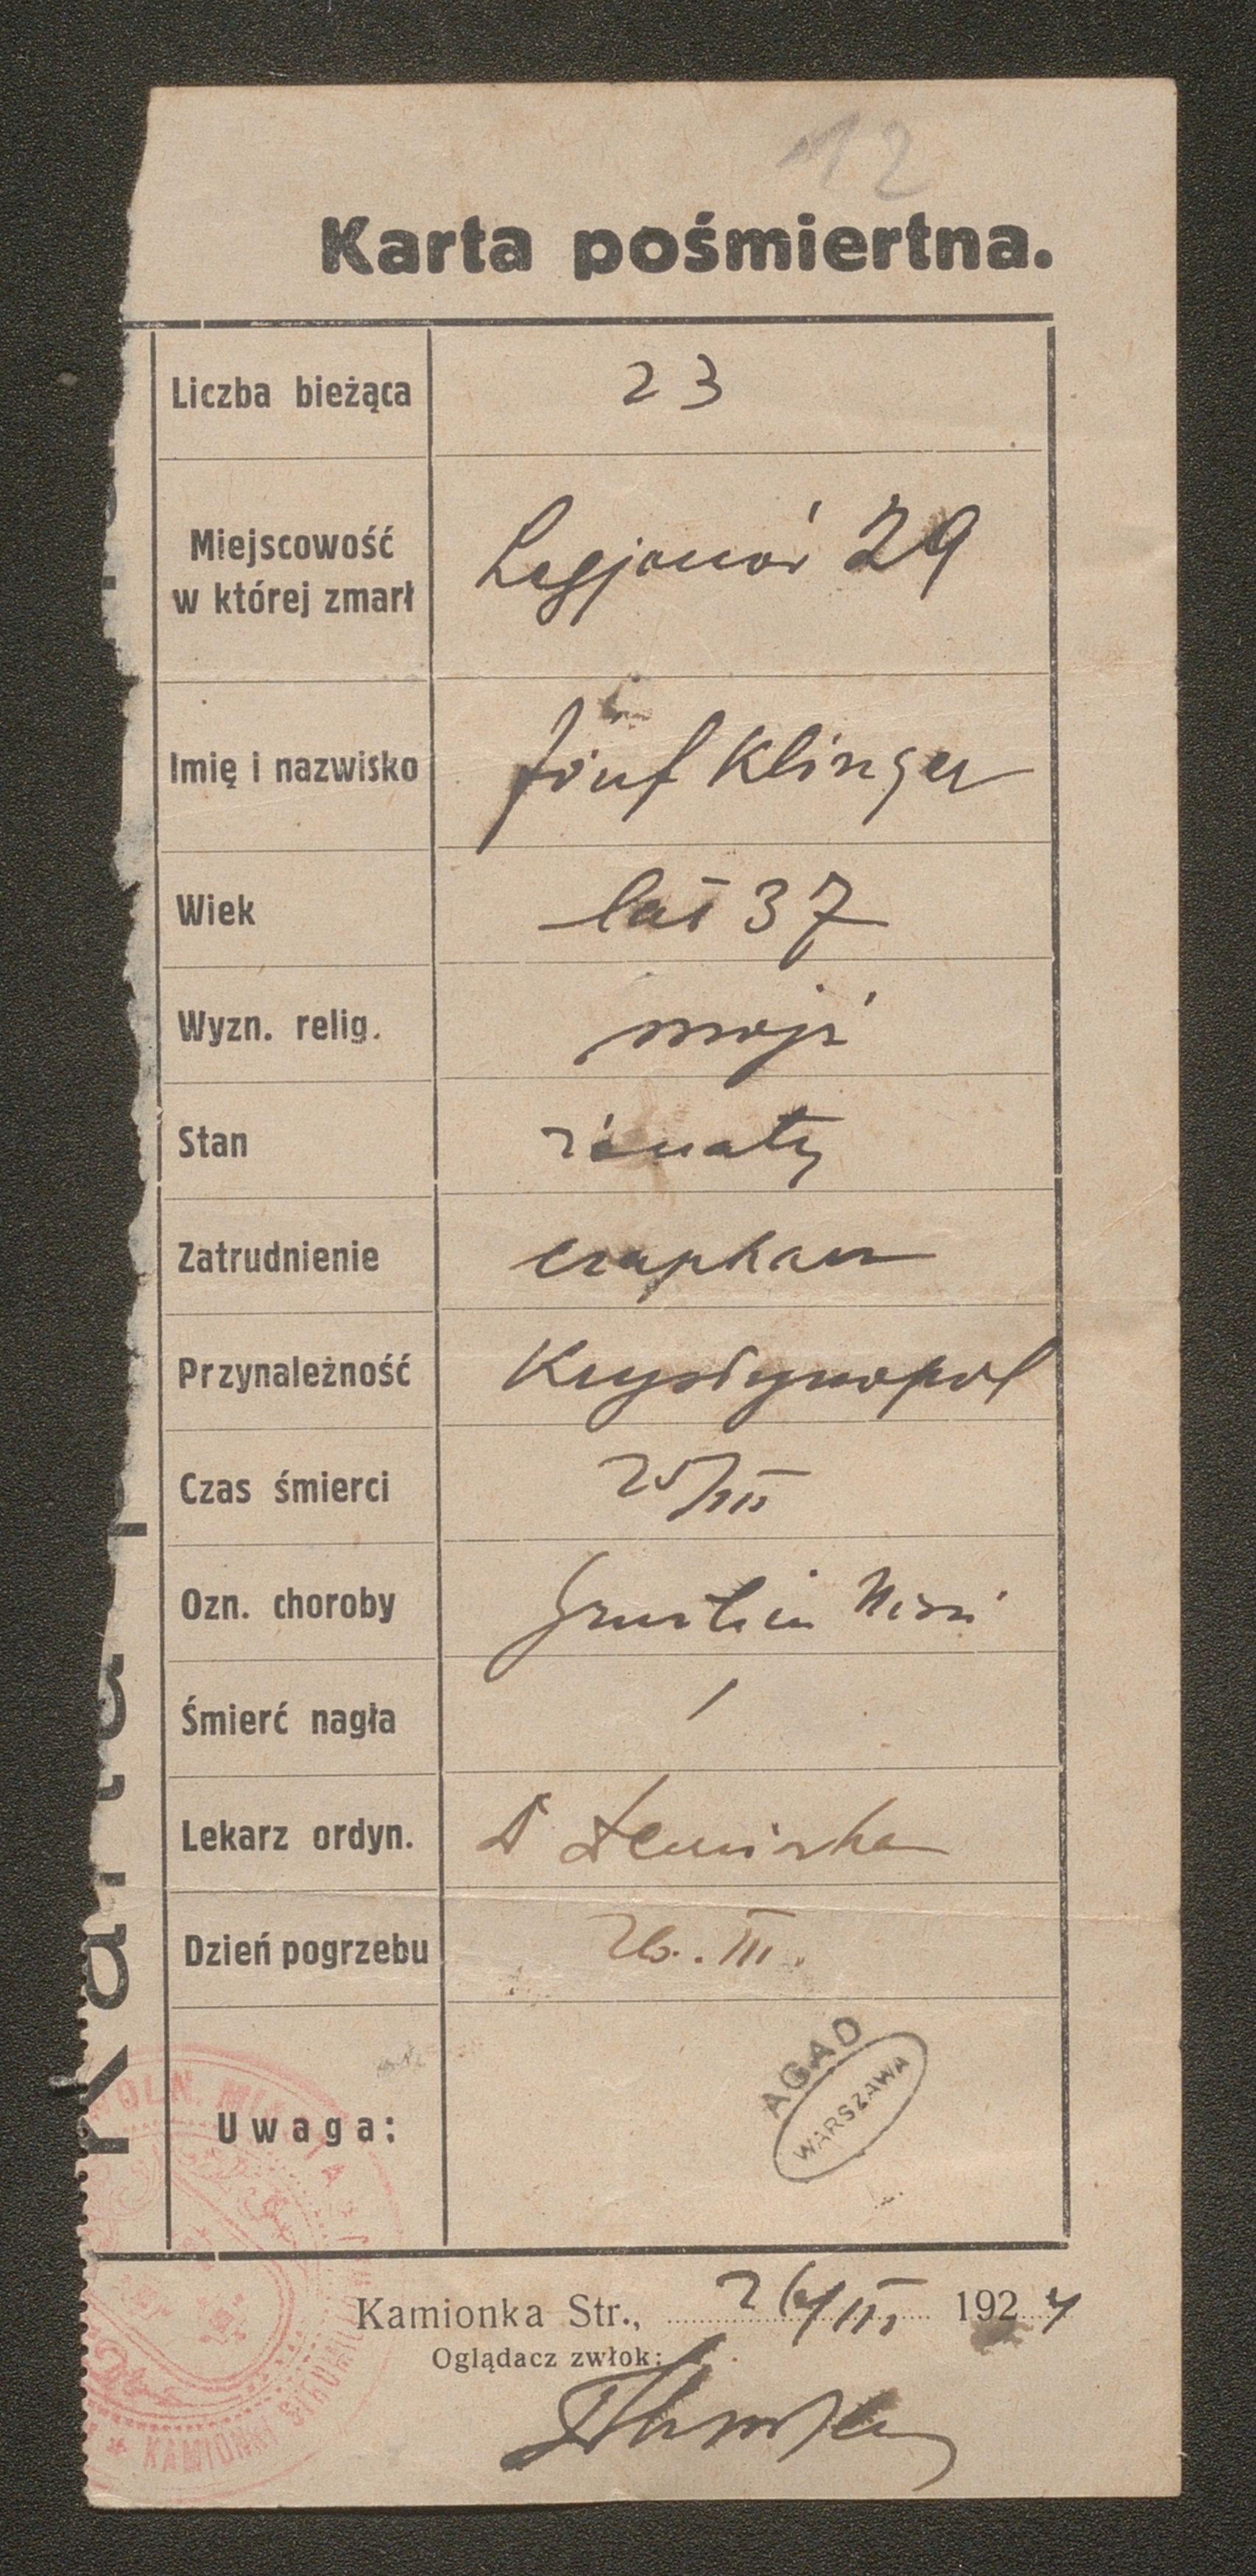 12
Karta pośmiertna.
Liczba bieżąca 23
Miejscowość
w której zmarł
Legjonów 29
Imię i nazwisko Józef Klinger
Wiek lat 37
Wyzn. relig. mojż
Stan żonaty
Zatrudnienie czapkarz
Przynależność Krystynopol
Czas śmierci 25/III
Ozn. choroby
Śmierć nagła /
Lekarz ordyn. Dr
Dzień pogrzebu 26. III.
Uwaga:
AGAD
WARSZAWA
WOLN. MIASTA
KAMIONKI STRUMIŁ
Karta
Kamionka Str., 26/III 1924
Oglądacz zwłok: